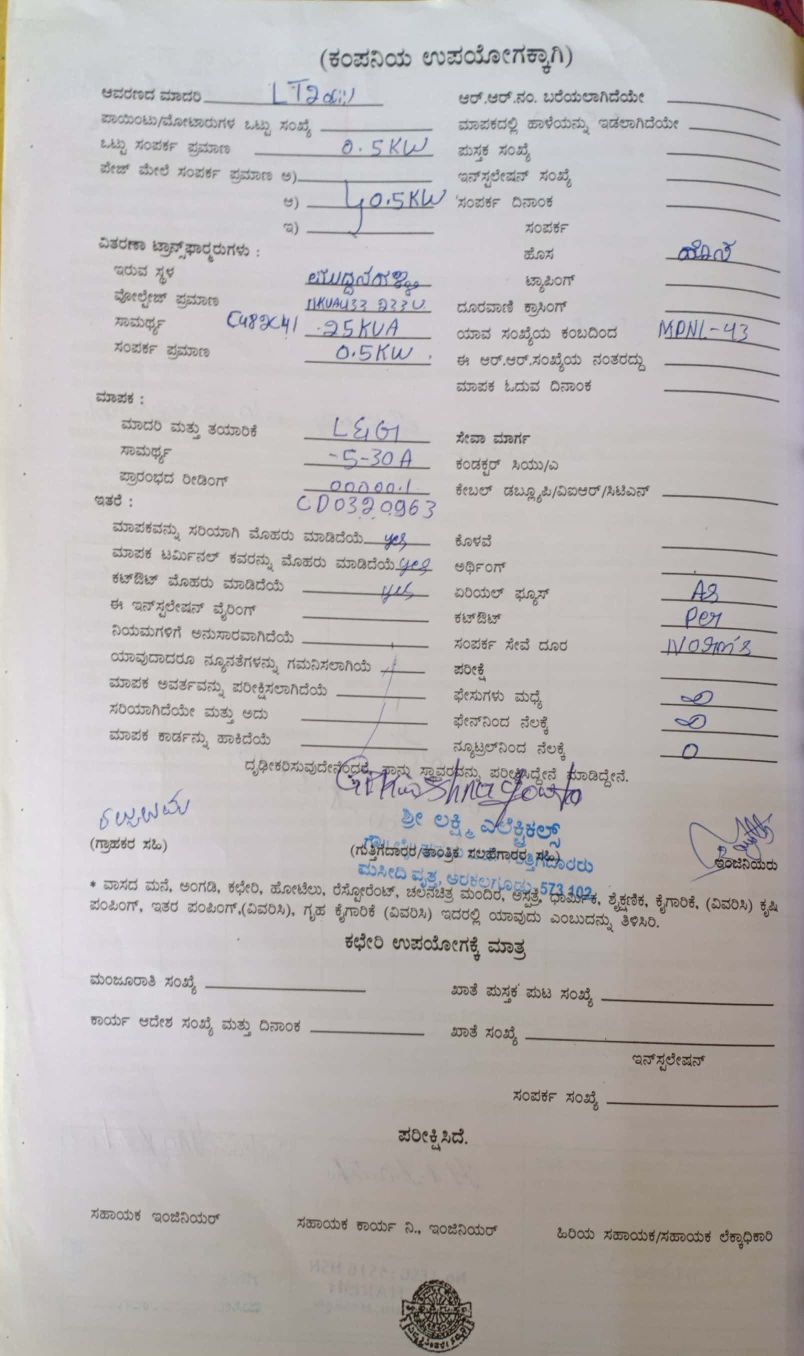 (ಕಂಪನಿಯ ಉಪಯೋಗಕ್ಕಾಗಿ)
ಆವರಣದ ಮಾದರಿ LT2 ಆರ್.ಆರ್.ನಂ. ಬರೆಯಲಾಗಿದೆಯೇ
ಪಾಯಿಂಟು/ಮೋಟಾರುಗಳ ಒಟ್ಟು ಸಂಖ್ಯೆ ಮಾಪಕದಲ್ಲಿ ಹಾಳೆಯನ್ನು ಇಡಲಾಗಿದೆಯೇ
ಒಟ್ಟು ಸಂಪರ್ಕ ಪ್ರಮಾಣ 0.5KW ಪುಸ್ತಕ ಸಂಖ್ಯೆ
ಪೇಜ್ ಮೇಲೆ ಸಂಪರ್ಕ ಪ್ರಮಾಣ ಅ) ಇನ್‌ಸ್ಪಲೇಷನ್ ಸಂಖ್ಯೆ
ಆ) 0.5KW ಸಂಪರ್ಕ ದಿನಾಂಕ
ಇ) ಸಂಪರ್ಕ
ವಿತರಣಾ ಟ್ರಾನ್ಸ್‌ಫಾರ್ಮರುಗಳು : ಹೊಸ ಹೊಸ
ಇರುವ ಸ್ಥಳ ಟ್ಯಾಪಿಂಗ್
ವೋಲ್ಟೇಜ್ ಪ್ರಮಾಣ ದೂರವಾಣಿ ಕ್ರಾಸಿಂಗ್
ಸಾಮರ್ಥ್ಯ C482C41 25KVA ಯಾವ ಸಂಖ್ಯೆಯ ಕಂಬದಿಂದ MDNL-43
ಸಂಪರ್ಕ ಪ್ರಮಾಣ 0.5KW ಈ ಆರ್.ಆರ್.ಸಂಖ್ಯೆಯ ನಂತರದ್ದು
ಮಾಪಕ ಓದುವ ದಿನಾಂಕ
ಮಾಪಕ :
ಮಾದರಿ ಮತ್ತು ತಯಾರಿಕೆ L&G ಸೇವಾ ಮಾರ್ಗ
ಸಾಮರ್ಥ್ಯ -5-30A ಕಂಡಕ್ಟರ್ ಸಿಯು/ಎ
ಪ್ರಾರಂಭದ ರೀಡಿಂಗ್ 00000.1 ಕೇಬಲ್ ಡಬ್ಲ್ಯೂಪಿ/ವಿಐಆರ್/ಸಿಟಿಎನ್
ಇತರೆ : CD0320963
ಮಾಪಕವನ್ನು ಸರಿಯಾಗಿ ಮೊಹರು ಮಾಡಿದೆಯೆ yes ಕೊಳವೆ
ಮಾಪಕ ಟರ್ಮಿನಲ್ ಕವರನ್ನು ಮೊಹರು ಮಾಡಿದೆಯೆ yes ಅರ್ಥಿಂಗ್
ಕಟ್‌ಔಟ್ ಮೊಹರು ಮಾಡಿದೆಯೆ yes ಏರಿಯಲ್ ಫ್ಯೂಸ್ As
ಈ ಇನ್‌ಸ್ಪಲೇಷನ್ ವೈರಿಂಗ್ ಕಟ್‌ಔಟ್ Per
ನಿಯಮಗಳಿಗೆ ಅನುಸಾರವಾಗಿದೆಯೆ ಸಂಪರ್ಕ ಸೇವೆ ದೂರ Norm's
ಯಾವುದಾದರೂ ನ್ಯೂನತೆಗಳನ್ನು ಗಮನಿಸಲಾಗಿಯೆ ಪರೀಕ್ಷೆ
ಮಾಪಕ ಆವರ್ತವನ್ನು ಪರೀಕ್ಷಿಸಲಾಗಿದೆಯೆ ಫೇಸುಗಳು ಮಧ್ಯೆ
ಸರಿಯಾಗಿದೆಯೇ ಮತ್ತು ಅದು ಫೇನ್‌ನಿಂದ ನೆಲಕ್ಕೆ
ಮಾಪಕ ಕಾರ್ಡನ್ನು ಹಾಕಿದೆಯೆ ನ್ಯೂಟ್ರಲ್‌ನಿಂದ ನೆಲಕ್ಕೆ 0
ದೃಢೀಕರಿಸುವುದೇನೆಂದರೆ, ನಾನು ಸ್ಥಾವರವನ್ನು ಪರೀಕ್ಷಿಸಿದ್ದೇನೆ ಮಾಡಿದ್ದೇನೆ.
ಶ್ರೀ ಲಕ್ಷ್ಮಿ ಎಲೆಕ್ಟ್ರಿಕಲ್ಸ್
(ಗ್ರಾಹಕರ ಸಹಿ) (ಗುತ್ತಿಗೆದಾರರ/ತಾಂತ್ರಿಕ ಸಲಹೆಗಾರರ ಸಹಿ) ಇಂಜಿನಿಯರು
ಮಸೀದಿ ವೃತ್ತ, ಅರಕಲಗೂಡು-573 102
* ವಾಸದ ಮನೆ, ಅಂಗಡಿ, ಕಛೇರಿ, ಹೋಟೆಲು, ರೆಸ್ಟೋರೆಂಟ್, ಚಲನಚಿತ್ರ ಮಂದಿರ, ಆಸ್ಪತ್ರೆ, ಧಾರ್ಮಿಕ, ಶೈಕ್ಷಣಿಕ, ಕೈಗಾರಿಕೆ, (ವಿವರಿಸಿ) ಕೃಷಿ
ಪಂಪಿಂಗ್, ಇತರ ಪಂಪಿಂಗ್,(ವಿವರಿಸಿ), ಗೃಹ ಕೈಗಾರಿಕೆ (ವಿವರಿಸಿ) ಇದರಲ್ಲಿ ಯಾವುದು ಎಂಬುದನ್ನು ತಿಳಿಸಿರಿ.
ಕಛೇರಿ ಉಪಯೋಗಕ್ಕೆ ಮಾತ್ರ
ಮಂಜೂರಾತಿ ಸಂಖ್ಯೆ ಖಾತೆ ಪುಸ್ತಕ ಪುಟ ಸಂಖ್ಯೆ
ಕಾರ್ಯ ಆದೇಶ ಸಂಖ್ಯೆ ಮತ್ತು ದಿನಾಂಕ ಖಾತೆ ಸಂಖ್ಯೆ
ಇನ್‌ಸ್ಪಲೇಷನ್
ಸಂಪರ್ಕ ಸಂಖ್ಯೆ
ಪರೀಕ್ಷಿಸಿದೆ.
ಸಹಾಯಕ ಇಂಜಿನಿಯರ್ ಸಹಾಯಕ ಕಾರ್ಯ ನಿ., ಇಂಜಿನಿಯರ್ ಹಿರಿಯ ಸಹಾಯಕ/ಸಹಾಯಕ ಲೆಕ್ಕಾಧಿಕಾರಿ